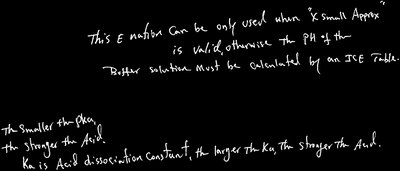 This E nation Can be only used when "X small Approx"
is valid, otherwise The PH of the
Buffer solution Must be calculated by an ICE Table.
The smaller the pKa,
the stronger the Acid.
Ka is Acid dissociation constant, the larger the Ka, The stronger the Acid.